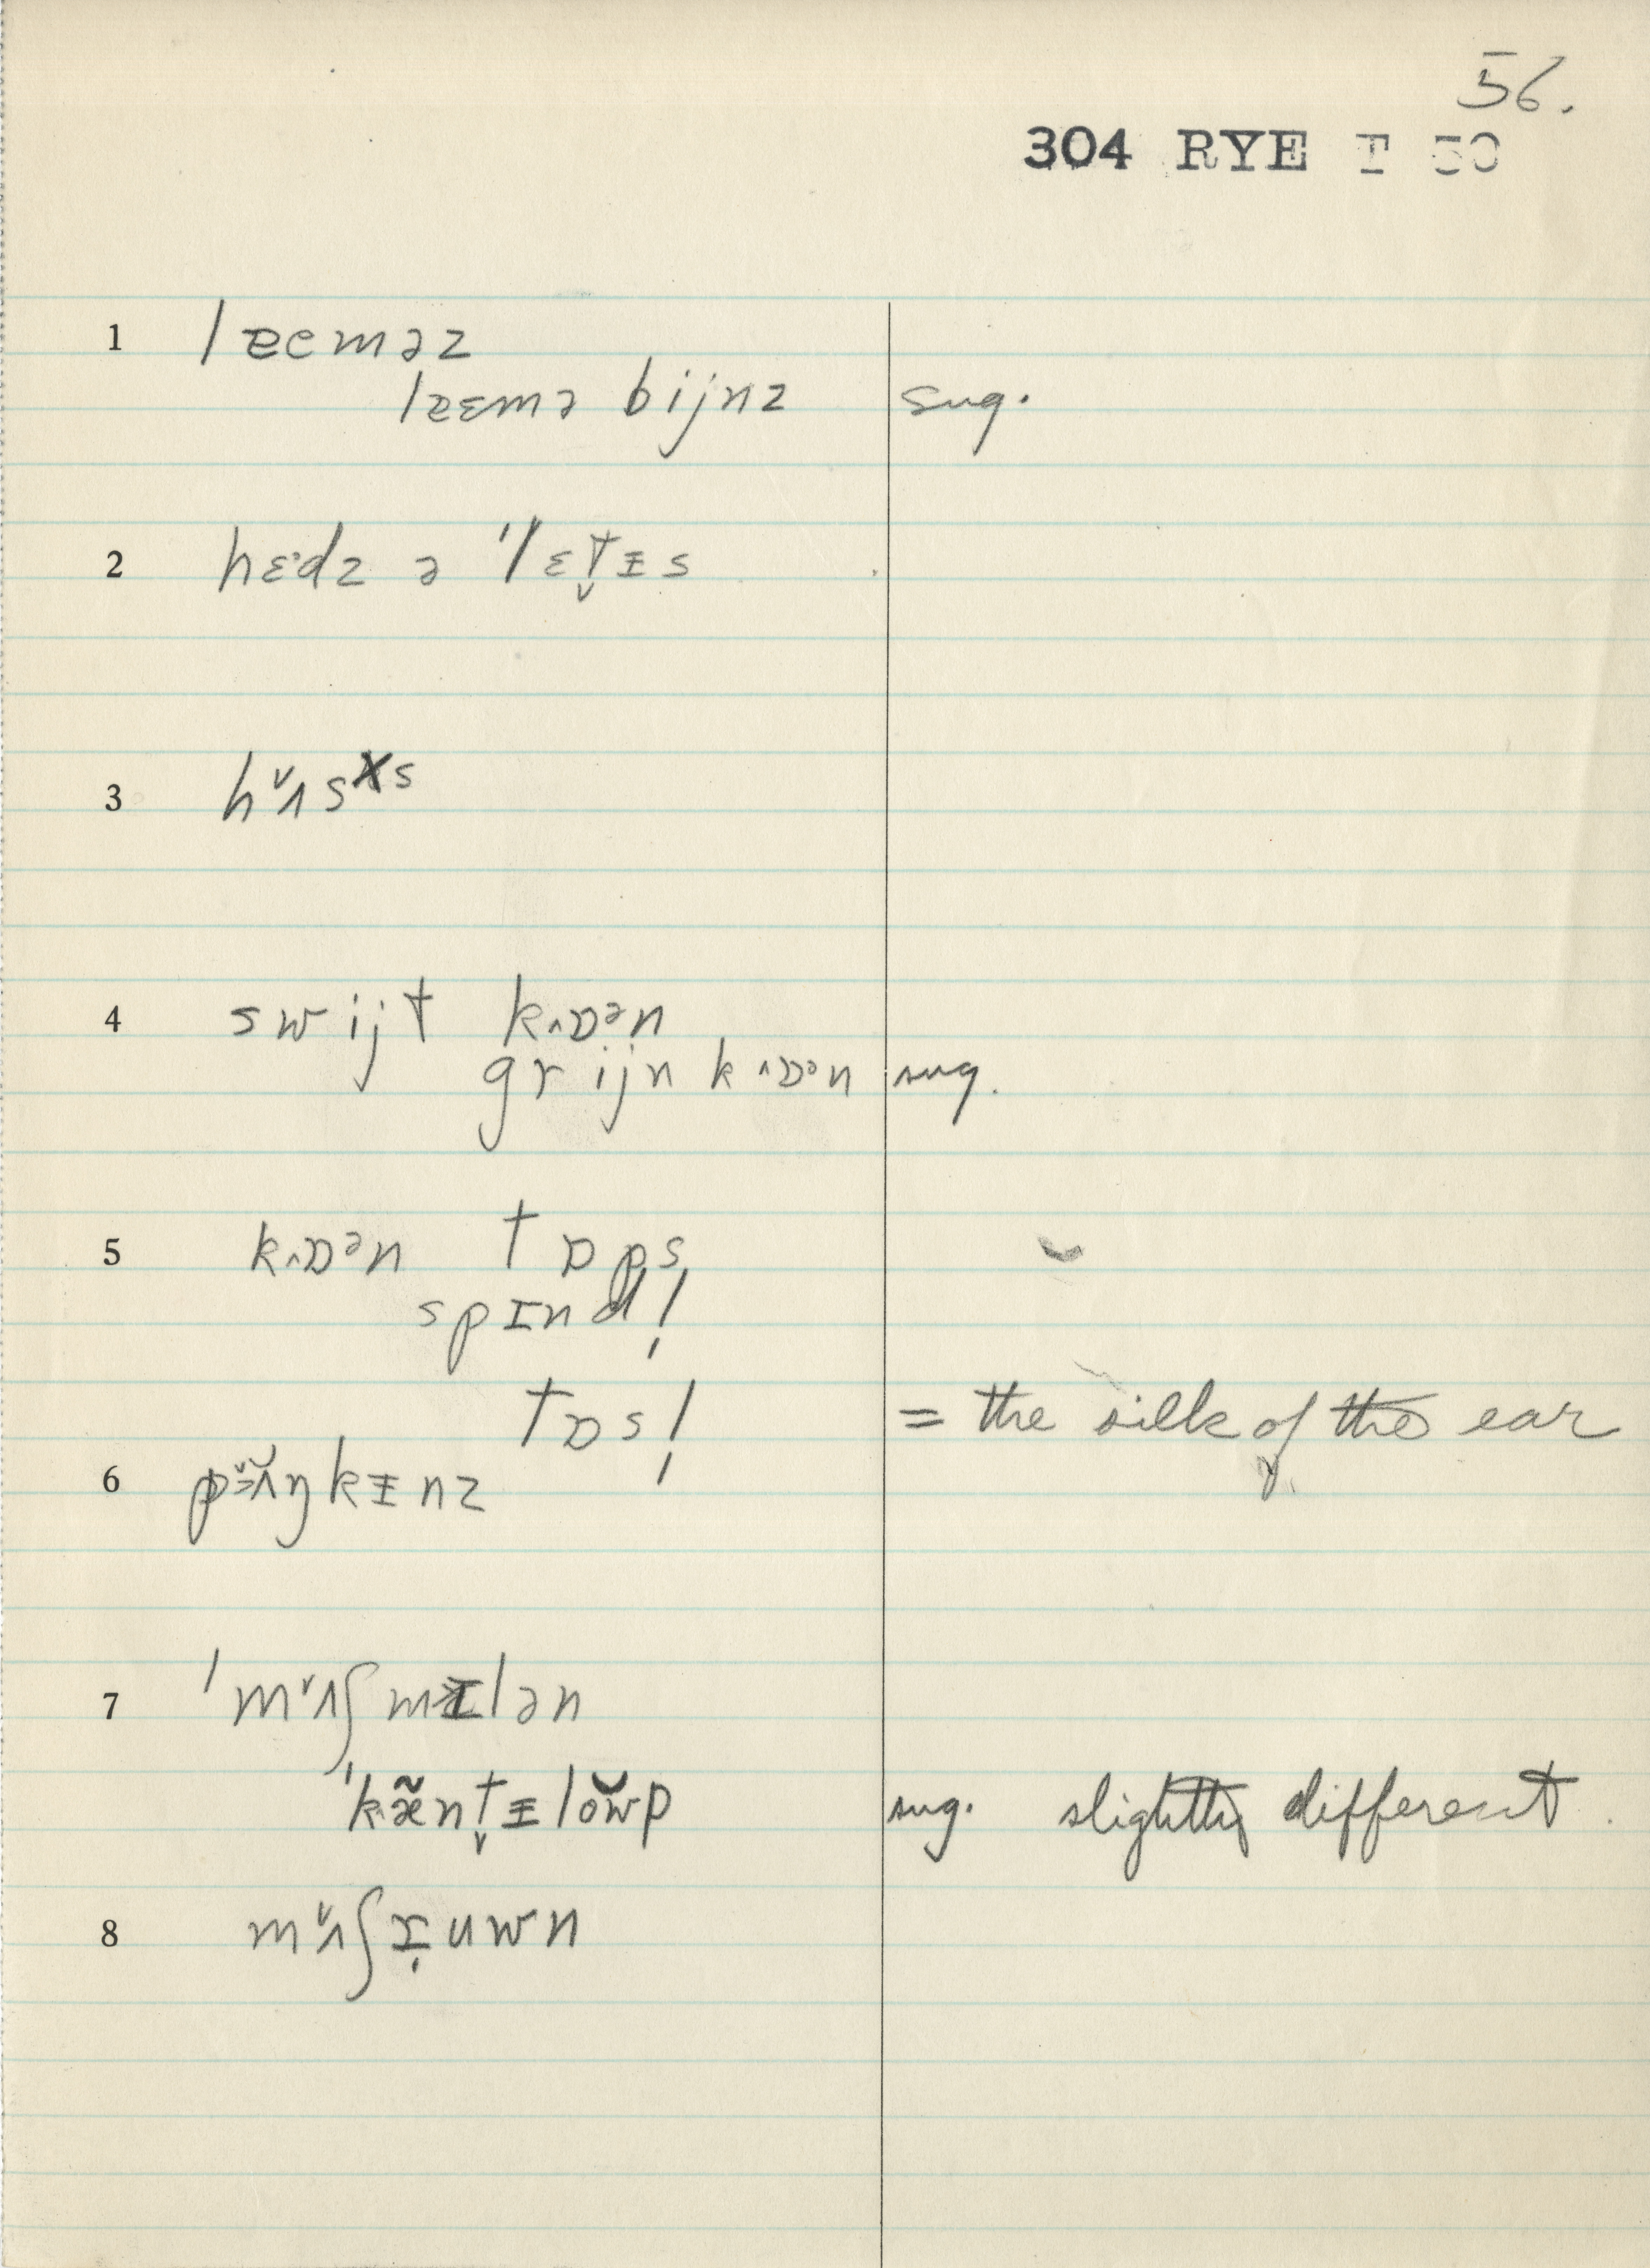 56.
304 RYE T 50
1 læɛməz
læɛmə bijnz sug.
2 hɛ·dz ə 'lɛt̬ɪ̵s
3 hᵛʌsˣs
4 swijt k˄ɒᵊn
grijn k˄ɒᵊn sug.
5 k˄ɒᵊn tɒps
spɪnd!
tɒs! = the silk of the ear
6 pʌ̆ŋkɪ̵nz
7 'mᵛʌʃmɪlən
'kæ̃nt̬ɪ̵lŏw̆p sug. slightly different
8 mᵛʌʃɪ̩uwn